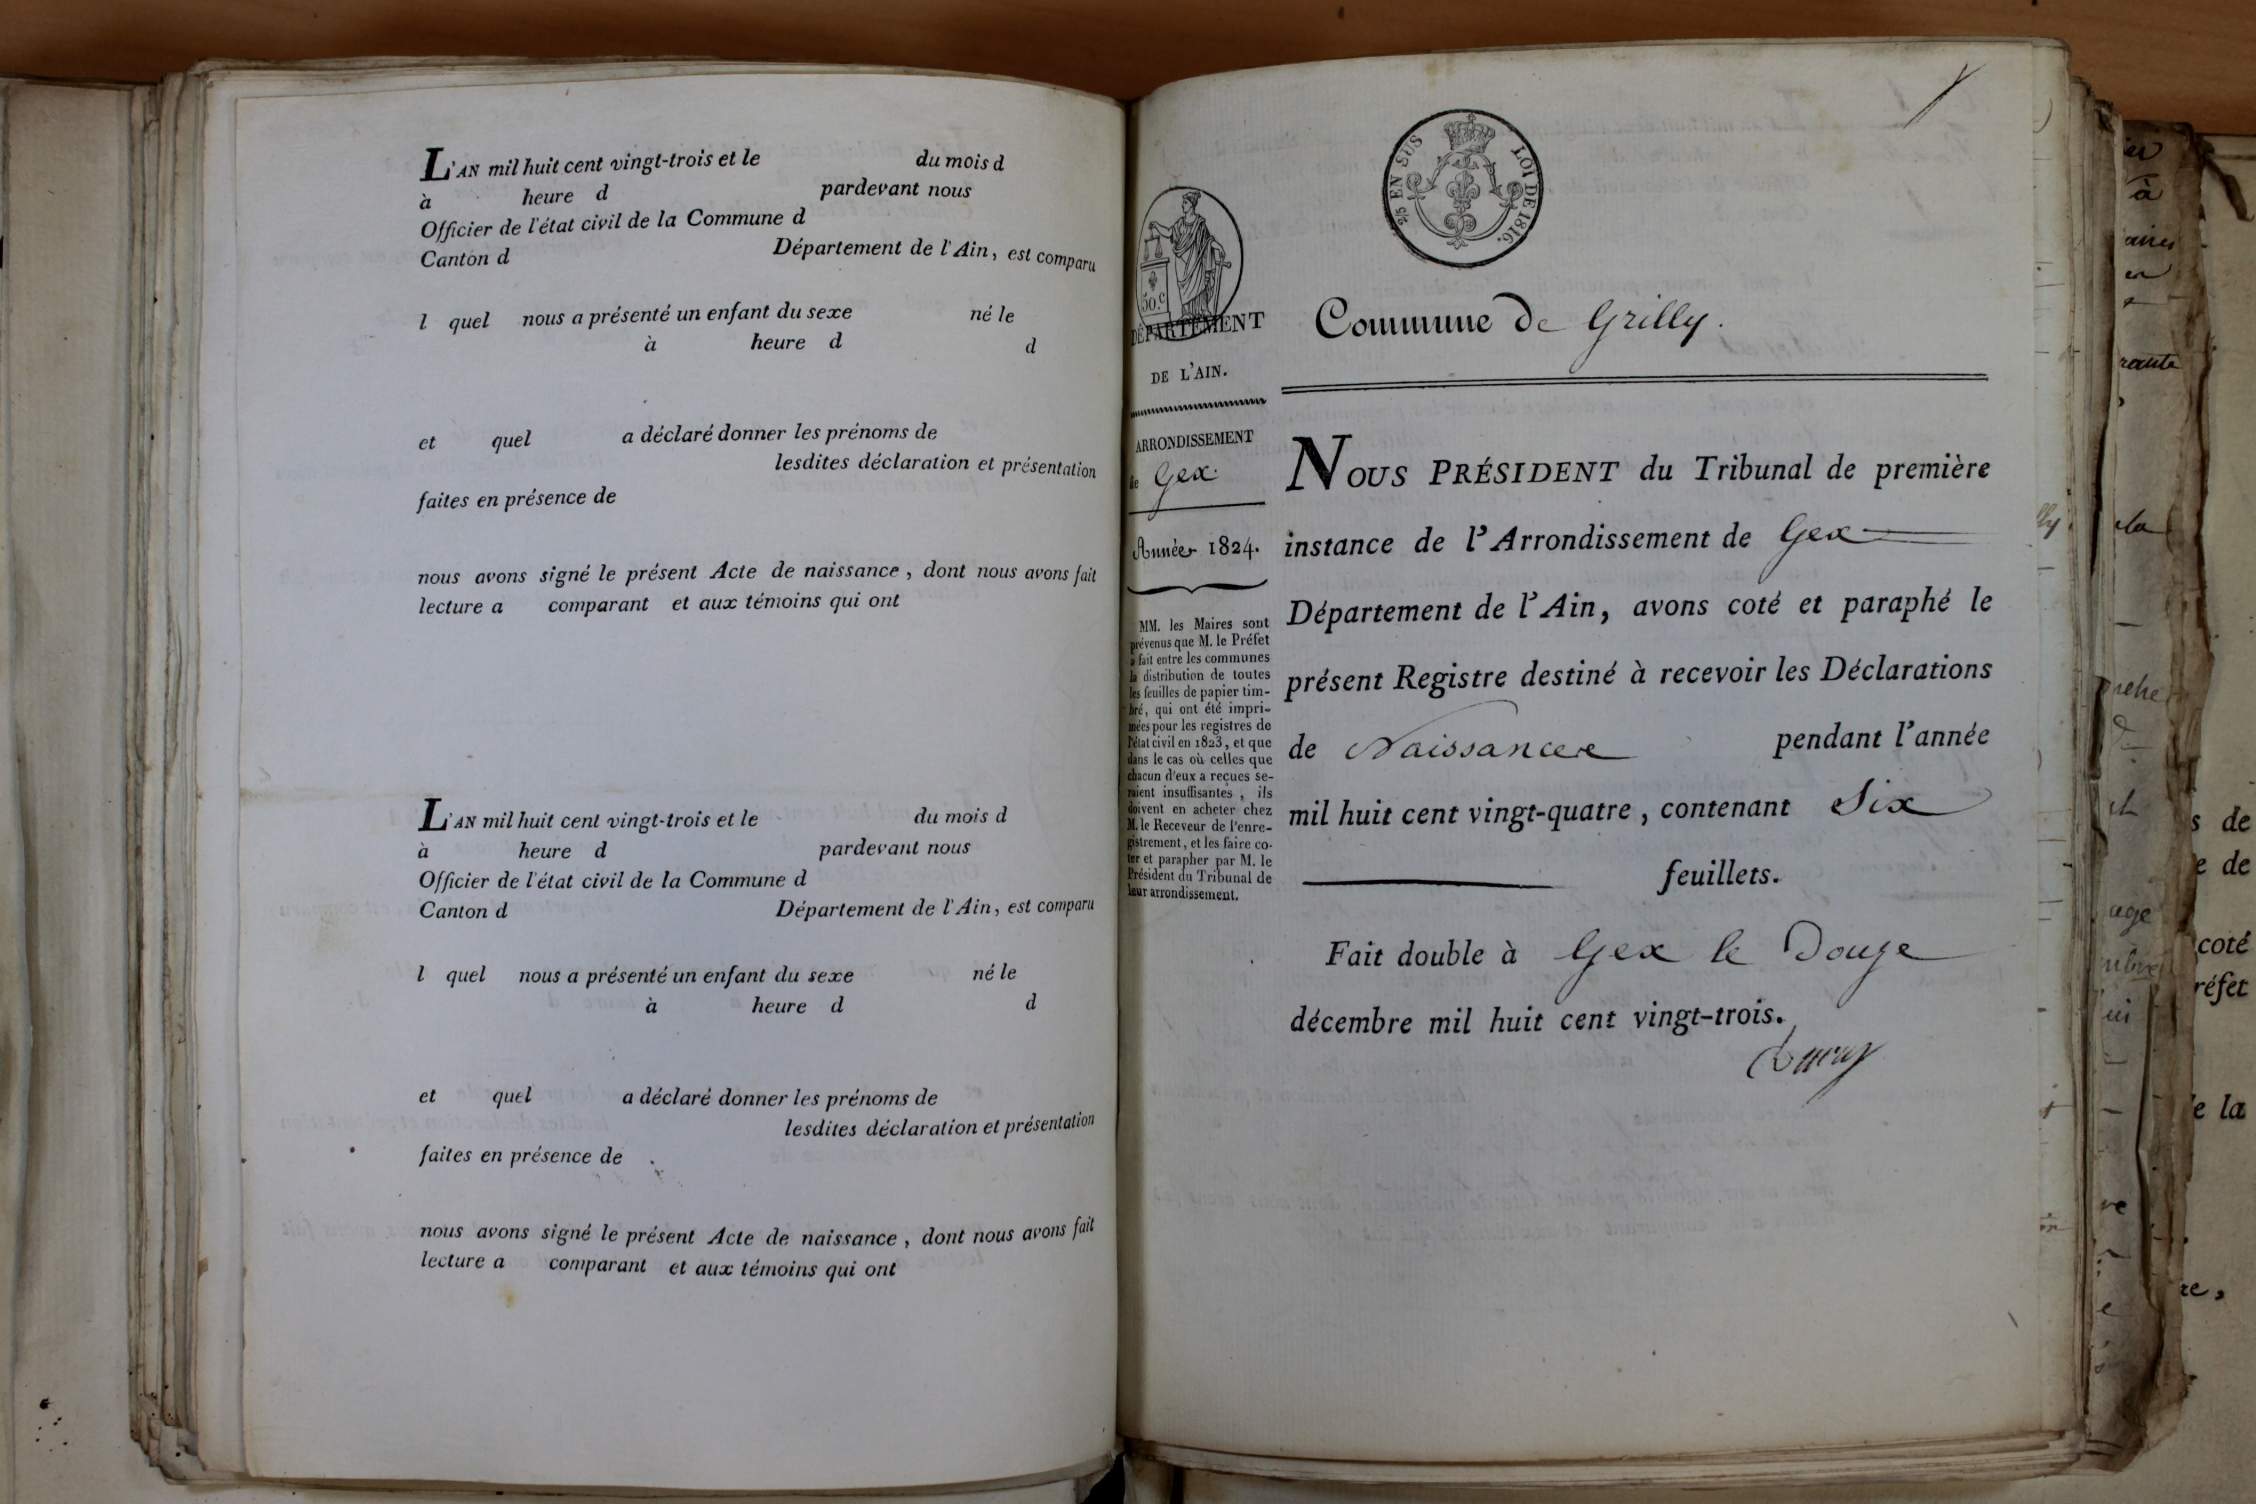 L'AN mil huit cent vingt-trois et le du mois d
à heure d pardevant nous
Officier de l'état civil de la Commune d
Canton d Département de l'Ain, est comparu
l quel nous a présenté un enfant du sexe né le
à heure d d
et quel a déclaré donner les prénoms de
lesdites déclaration et présentation
faites en présence de
nous avons signé le présent Acte de naissance, dont nous avons fait
lecture a comparant et aux témoins qui ont
L'AN mil huit cent vingt-trois et le du mois d
à heure d pardevant nous
Officier de l'état civil de la Commune d
Canton d Département de l'Ain, est comparu
l quel nous a présenté un enfant du sexe né le
à heure d d
et quel a déclaré donner les prénoms de
lesdites déclaration et présentation
faites en présence de
nous avons signé le présent Acte de naissance, dont nous avons fait
lecture a comparant et aux témoins qui ont
2/5 EN SUS LOI DE 1816.
50.c
DÉPARTEMENT
DE L'AIN.
ARRONDISSEMENT
de Gex.
Année 1824.
MM. les Maires sont
prévenus que M. le Préfet
a fait entre les communes
la distribution de toutes
les feuilles de papier tim-
bré, qui ont été impri-
mées pour les registres de
l'état civil en 1823, et que
dans le cas où celles que
chacun d'eux a reçues se-
raient insuffisantes, ils
doivent en acheter chez
M. le Receveur de l'enre-
gistrement, et les faire co-
ter et parapher par M. le
Président du Tribunal de
leur arrondissement.
Commune de Grilly.
NOUS PRÉSIDENT du Tribunal de première
instance de l'Arrondissement de Gex
Département de l'Ain, avons coté et paraphé le
présent Registre destiné à recevoir les Déclarations
de Naissance pendant l'année
mil huit cent vingt-quatre, contenant Six
feuillets.
Fait double à Gex le Douze
décembre mil huit cent vingt-trois.
s de
e de
coté
réfet
e la
re,